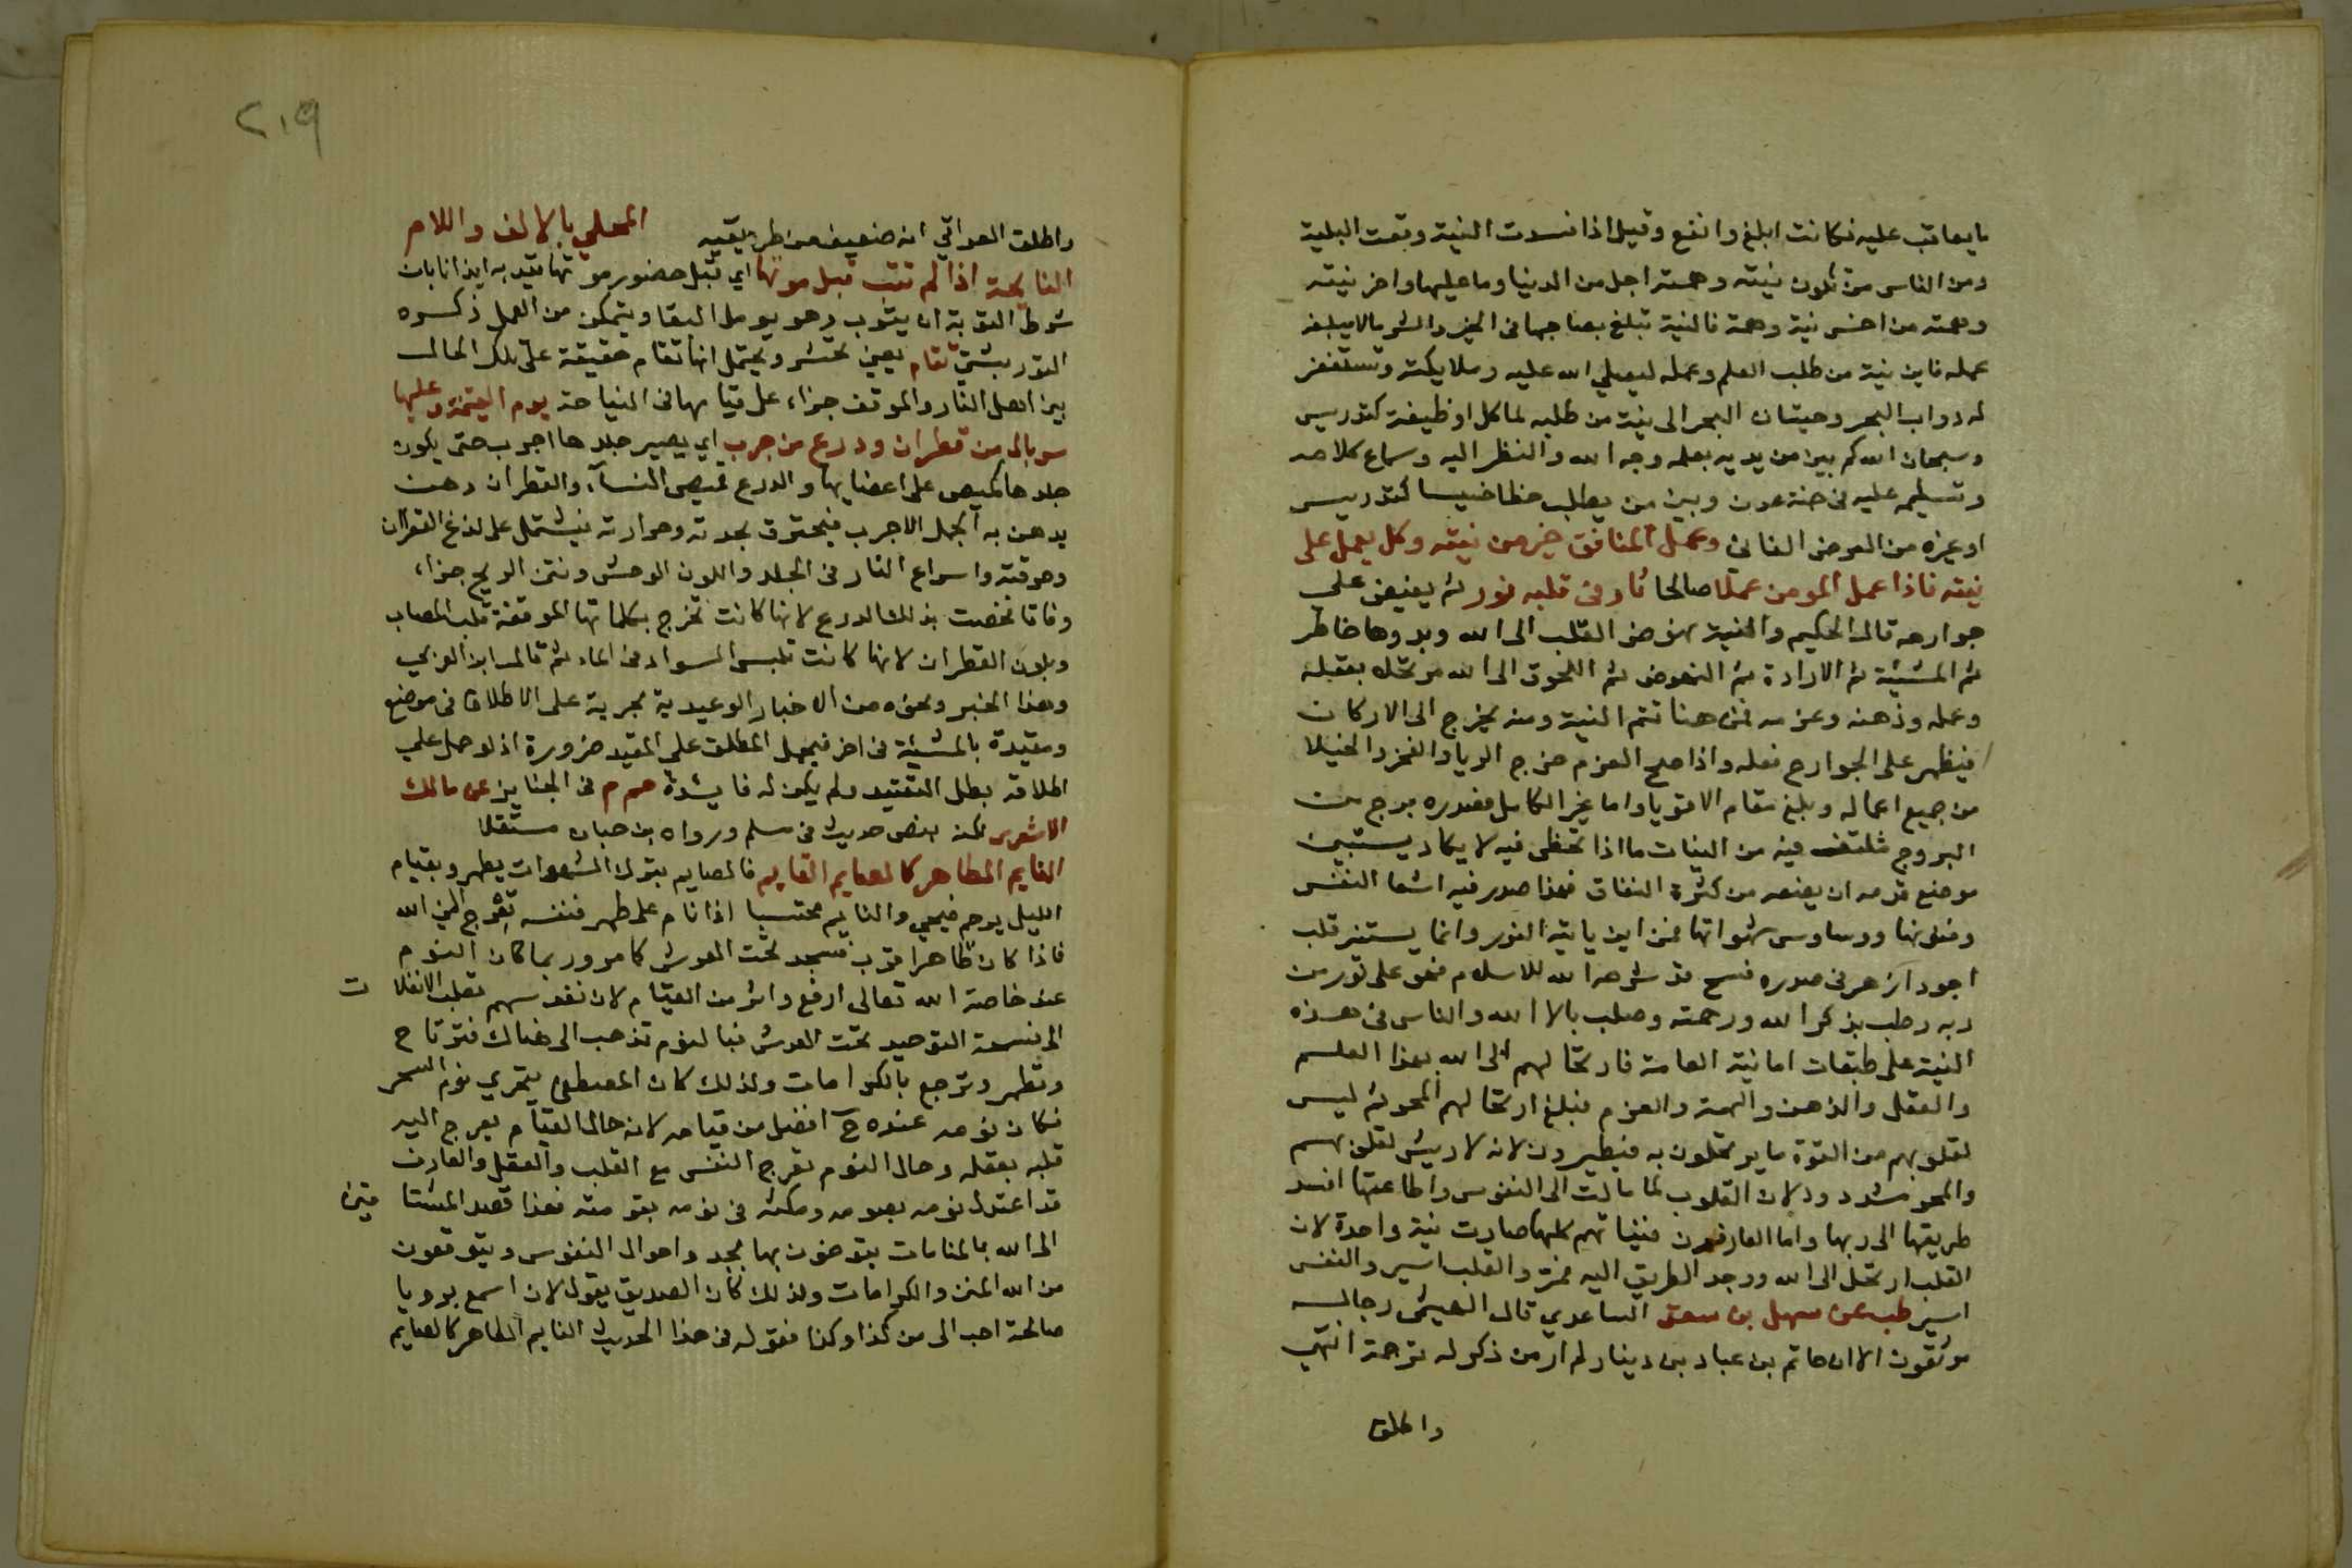 ما يعاقب عليه فكانت ابلغ وانفع وقيل اذا فسدت النية وقعت البلية
ومن الناس من تكون نيته وهمته اجل من الدنيا وما عليها واخر نيته
وهمته من اخس نية وهمة فالنية تبلغ بصاحبها في الخير والشر مالا يبلغه
عمله فاين نية من طلب العلم وعمله ليصلي الله عليه وملايكته وتستغفر
له دواب البحر وحيتان البحر الى نية من طلبه لماكل او وظيفة كتدريس
وسبحان الله كم بين من يريد بعلمه وجه الله والنظر اليه وسماع كلامه
وتسليمه عليه في جنة عدن وبين من يطلب حظا خسيسا كتدريس
او غيره من العرض الفاني وعمل المنافق خير من نيته وكل يعمل على
نيته فاذا عمل المومن عملا صالحا نار في قلبه نور ثم يفيض على
جوارحه قال الحكيم والنية نهوض القلب الى الله وبدوها خاطر
ثم المشيئة ثم الارادة ثم النهوض ثم اللحوق الى الله مرتحلا بعقله
وعمله وذهنه وعزمه فمن هنا تتم النية ومنه يخرج الى الاركان
فيظهر على الجوارح فعله واذا صح العزم خرج الريا والفخر والخيلا
من جميع اعماله وبلغ مقام الاقويا واما غير الكامل فصدره مرج من
المروج ملتف فيه من النبات ما اذا تخطى فيه لا يكاد يستبين
موضع قدمه ان يضعه من كثرة النفاق فهذا صدر فيه اشغا النفس
وفنونها ووساوس شهواتها فمن اين ياتيه النور وانما يستنير قلب
اجود ازهر في صدره فسح قد شرحه الله للاسلام فهو على نور من
ربه رطب بذكر الله ورحمته وصلب بالا الله والناس في هذه
النية على طبقات اما نية العامة فارتحالهم الى الله بهذا العلم
والعقل والذهن والهمة والعزم فبلغ ارتحالهم المحو ثم ليس
لقلوبهم من القوة ما يرتحلون به فيطيرون لانه لا ريش لقلوبهم
والمحو مشدود لان القلوب لما مالت الى النفوس واطاعتها انسد
طريقها الى ربها واما العارفون فنياتهم كلها صارت نية واحدة لان
القلب ارتحل الى الله ووجد الطريق اليه فمر والقلب اسير والنفس
اسير طب عن سهل بن سعد الساعدي قال الهيثمي رجاله
موثقون الا ان حاتم بن عباد بن دينار لم ار من ذكر له ترجمة انتهى
واطلق
٢١٩
واطلق العراقي انه ضعيف من طريقيه المحلي بالالف واللام
النايحة اذا لم تتب قبل موتها اي قبل حضور موتها قيد به ايذانا بان
شرط التوبة ان يتوب وهو يومل البقا ويتمكن من العمل ذكره
التوربشتي تقام يعني تحشر ويحتمل انها تقام حقيقة على تلك الحال
بين اهل النار والموقف جزاء على قيامها في النياحة يوم القيمة وعليها
سربال من قطران ودرع من جرب اي يصير جلدها اجرب حتى يكون
جلدها كقميص على اعضايها والدرع قميص النسآء والقطران دهن
يدهن به الجمل الاجرب فيحترق بحدته وحرارته فيشتمل على لذغ القطران
وحرقته واسراع النار في الجلد واللون الوحش ونتن الريح جزاء
وفاقا فخصت بذلك الدرع لانها كانت تخرج بكلماتها الموقفة قلب المصاب
وبلون القطران لانها كانت تلبس السواد في الماء ثم قال ابن العربي
وهذا الخبر ونحوه من الاخبار الوعيدية مجرية على الاطلاق في موضع
ومقيدة بالمشيئة في اخر فيحمل المطلق على المقيد ضرورة اذ لو حمل على
اطلاقه بطل التقييد ولم يكن له فايدة حم م في الجنايز عن مالك
الاشعري لكنه بعض حديث في مسلم ورواه بن حبان مستقلا
النايم الطاهر كالصايم القايم فالصايم بترك الشهوات يطهر وبقيام
الليل يرحم فيحيى والنايم محتسبا اذا نام على طهر فنفسه تعرج الى الله
فاذا كان طاهرا قرب فسجد تحت العرش كما مر وربما كان النوم
عند خاصة الله تعالى ارفع وابر من القيام لان نفوسهم تطلب الانفلات
الى فسحة التوحيد تحت العرش فبالنوم تذهب الى هناك فترتاح
وتطهر وترجع بالكرامات ولذلك كان المصطفى يتحرى نوم السحر
فكان نومه عنده ح افضل من قيامه لانه حال القيام يعرج اليه
قلبه بعقله وحال النوم تعرج النفس مع القلب والعقل والعارف
قد اعتدل نومه بصومه ومكثه في نومه بقومته فهذا قصد المشتاقين
الى الله بالمنامات يتوخون بها مجد واحوال النفوس ويتوقعون
من الله المنن والكرامات ولذلك كان الصديق يقول لان اسمع برويا
صالحة احب الى من كذا وكذا فقوله في هذا الحديث النايم الطاهر كالصايم